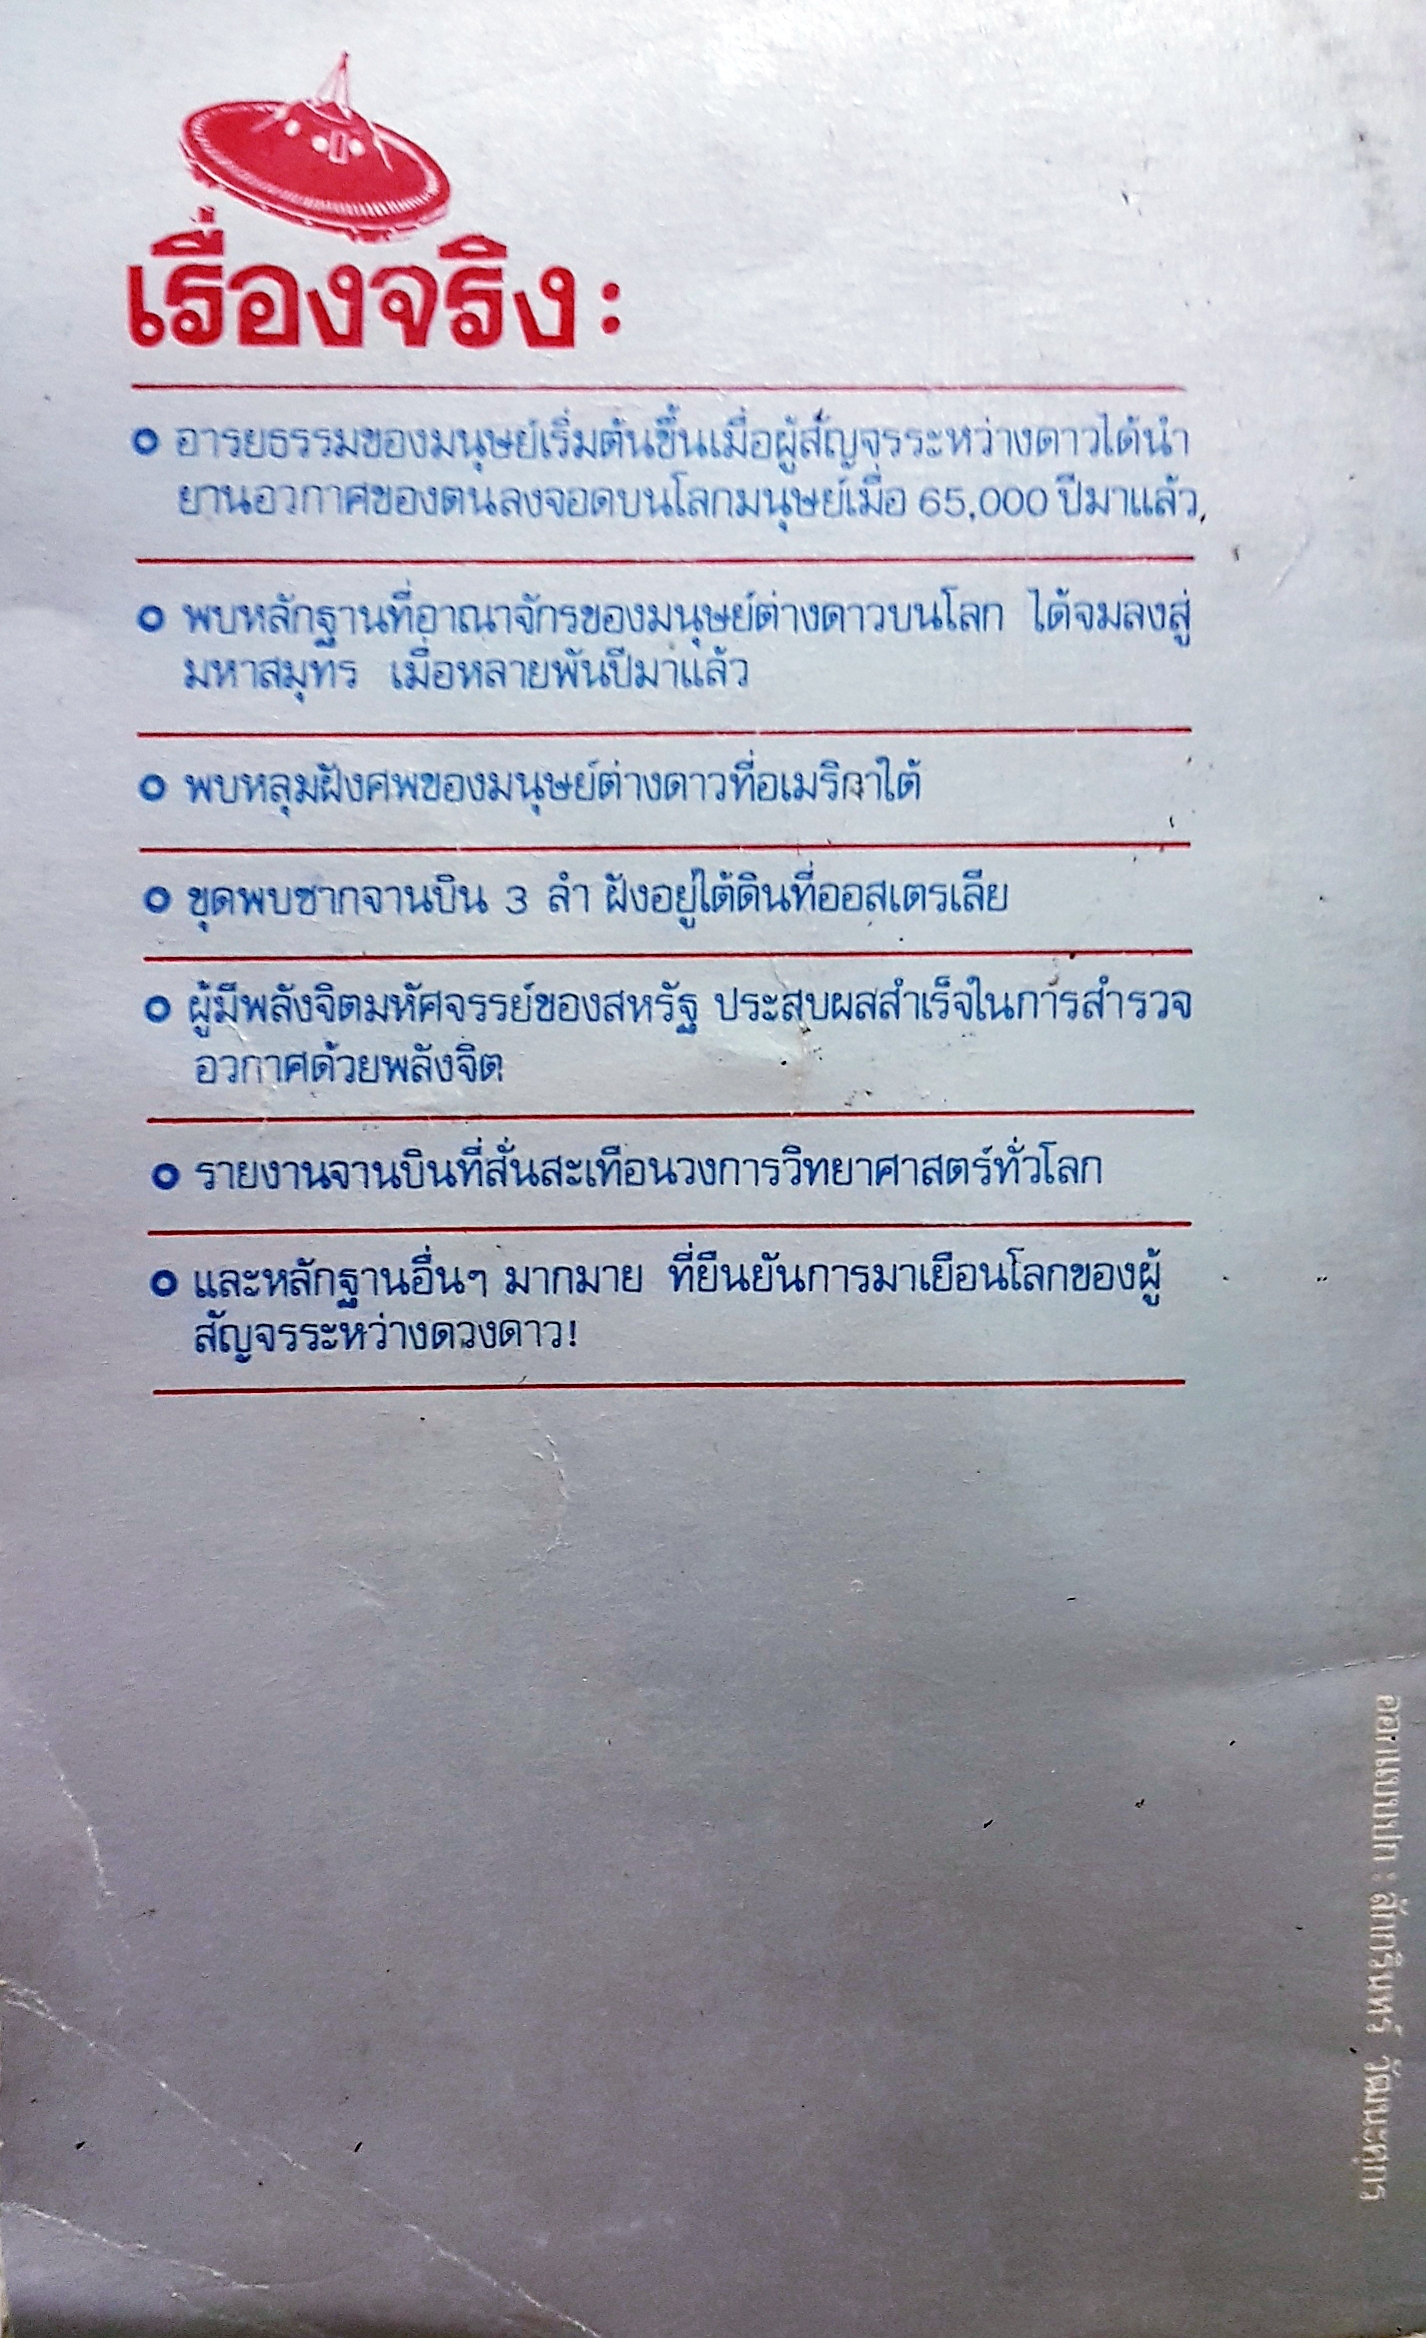 เรื่องจริง :
อารยธรรมของมนุษย์เริ่มต้นขึ้นเมื่อผู้สัญจรระหว่างดาวได้นำ
ยานอวกาศของตนลงจอดบนโลกมนุษย์เมื่อ 65,000 ปีมาแล้ว
พบหลักฐานที่อาณาจักรของมนุษย์ต่างดาวบนโลก ได้จมลงสู่
มหาสมุทร เมื่อหลายพันปีมาแล้ว
พบหลุมฝังศพของมนุษย์ต่างดาวที่อเมริกาใต้
ขุดพบซากจานบิน 3 ลำ ฝังอยู่ใต้ดินที่ออสเตรเลีย
ผู้มีพลังจิตมหัศจรรย์ของสหรัฐ ประสบผลสำเร็จในการสำรวจ
อวกาศด้วยพลังจิต
รายงานจานบินที่สั่นสะเทือนวงการวิทยาศาสตร์ทั่วโลก
และหลักฐานอื่นๆ มากมาย ที่ยืนยันการมาเยือนโลกของผู้
สัญจรระหว่างดวงดาว!
ออกแบบปก :